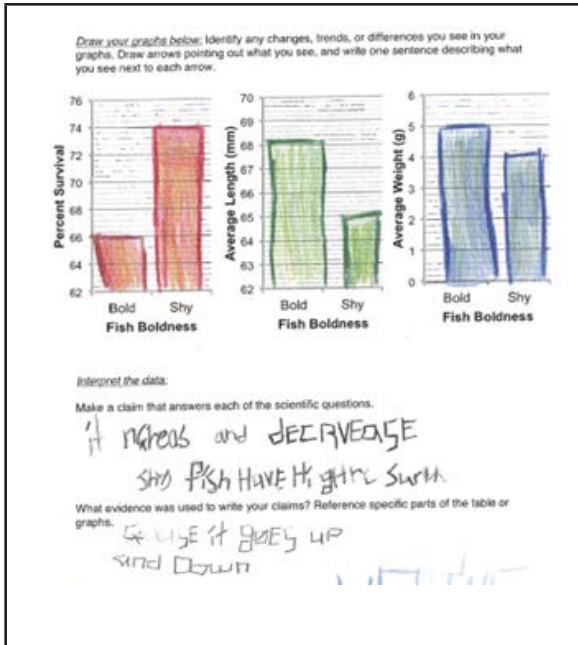 Draw your graphs below: Identify any changes, trends, or differences you see in your
graphs. Draw arrows pointing out what you see, and write one sentence describing what
you see next to each arrow.
76
74
72
70
68
66
64
62
Percent Survival
Bold Shy
Fish Boldness
70
69
68
67
66
65
64
63
62
Average Length (mm)
Bold Shy
Fish Boldness
6
5
4
3
2
1
0
Average Weight (g)
Bold Shy
Fish Boldness
Interpret the data:
Make a claim that answers each of the scientific questions.
it ncreas and dECRVEASE
Shy fish HAVE
What evidence was used to write your claims? Reference specific parts of the table or
graphs.
it goes up
and Down